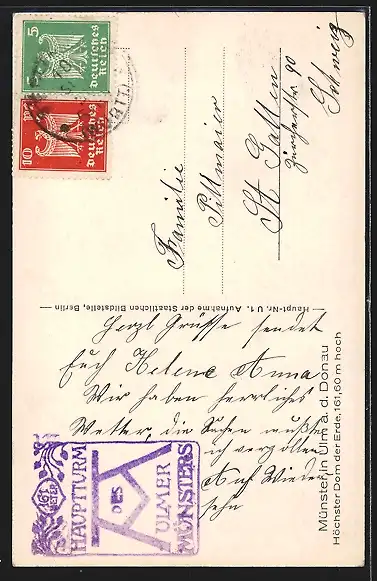 5
Deutsches
Reich
10
Deutsches
Reich
Familie
Pillmaier
St Gallen
Zürcherstr 90
Schweiz
Haupt-Nr. U 1. Aufnahme der Staatlichen Bildstelle, Berlin
Herzl Grüsse sendet
Euch Helene Anna
Wir haben herrliches
Wetter, die Sachen mußte
ich
Auf Wieder
sehn
HAUPTTURM
DES
ULMER
MÜNSTERS
Münster in Ulm a. d. Donau
Höchster Dom der Erde. 161,60 m hoch